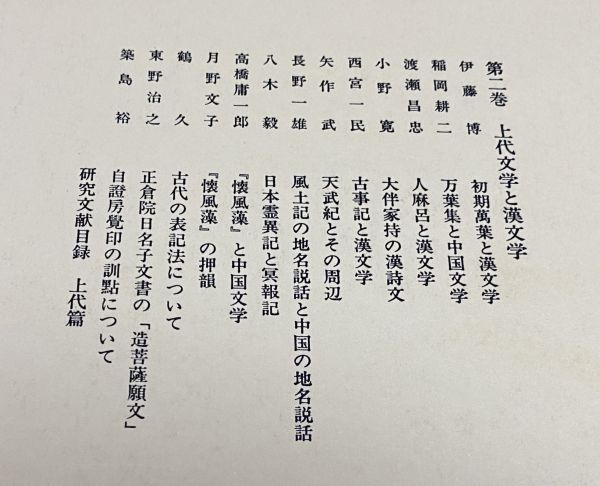 第二巻 上代文学と漢文学
伊藤博 初期萬葉と漢文学
稲岡耕二 万葉集と中国文学
渡瀬昌忠 人麻呂と漢文学
小野寛 大伴家持の漢詩文
西宮一民 古事記と漢文学
矢作武 天武紀とその周辺
長野一雄 風土記の地名説話と中国の地名説話
八木毅 日本霊異記と冥報記
高橋庸一郎 『懐風藻』と中国文学
月野文子 『懐風藻』の押韻
鶴久 古代の表記法について
東野治之 正倉院日名子文書の「造菩薩願文」
築島裕 自證房覺印の訓點について
研究文献目録 上代篇